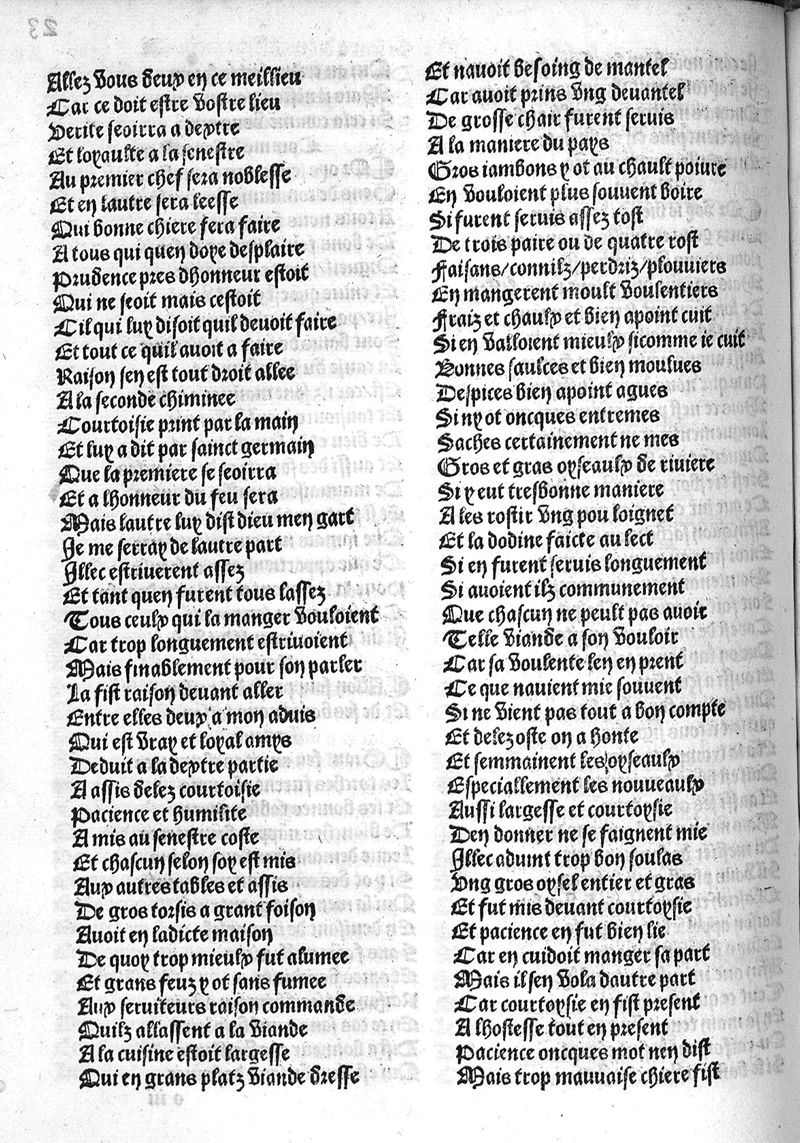 Allez vous deux en ce meillieu
Car ce doit estre vostre lieu
Verite seoirra a dextre
Et loyaulte a la senestre
Au premier chef sera noblesse
Et en lautre sera leesse
Qui bonne chiere fera faire
A tous qui quen doye desplaire
Prudence pres dhonneur estoit
Qui ne seoit mais cestoit
Cil qui luy disoit quil devoit faire
Et tout ce quil avoit a faire
Raison sen est tout droit allee
A la seconde chiminee
Courtoisie print par la main
Et luy a dit par sainct germain
Que la premiere se seoirra
Et a lhonneur du feu sera
Mais lautre luy dist dieu men gart
Je me serray de lautre part
Illec estriverent assez
Et tant quen furent tous lassez
Tous ceulx qui la manger vouloient
Car trop longuement estrivoient
Mais finablement pour son parler
La fist raison devant aller
Entre elles deux a mon aduis
Qui est vray et loyal amys
Deduit a la dextre partie
A assis delez courtoisie
Pacience et humilite
A mis au senestre coste
Et chascun selon soy est mis
Aux autres tables et assis
De gros torsis a grant foison
Avoit en ladicte maison
De quoy trop mieulx fut alumee
Et grans feuz y ot sans fumee
Aux serviteurs raison commande
Quilz allassent a la viande
A la cuisine estoit largesse
Qui en grans platz viande dresse
o iii
Et navoit besoing de mantel
Car avoit prins vng devantel
De grosse chair furent servis
A la maniere du pays
Gros iambons y ot au chault poivre
En vouloient plus souvent boire
Si furent servis assez tost
De trois paire ou de quatre rost
Faisans/connilz/perdriz/plouviers
En mangerent moult voulentiers
Fraiz et chaulx et bien apoint cuit
Si en valloient mieulx sicomme ie cuit
Bonnes saulces et bien moulues
Despices bien apoint agues
Si ny ot oncques entremes
Saches certainement ne mes
Gros et gras oyseaulx de riviere
Si y eut tresbonne maniere
A les rostir vng pou loignet
Et la dodine faicte au lect
Si en furent servis longuement
Si avoient ilz communement
Que chascun ne peult pas avoir
Telle viande a son vouloir
Car sa voulente len en prent
Ce que navient mie souvent
Si ne vient pas tout a bon compte
Et delez oste on a honte
Et semmainent les oyseaulx
Especiallement les nouveaulx
Aussi largesse et courtoysie
Den donner ne se faignent mie
Illec advint trop bon soulas
Vng gros oysel entier et gras
Et fut mis devant courtoysie
Et pacience en fut bien lie
Car en cuidoit manger sa part
Mais il sen vola dautre part
Car courtoysie en fist present
A lhostesse tout en present
Pacience oncques mot nen dist
Mais trop mauvaise chiere fist